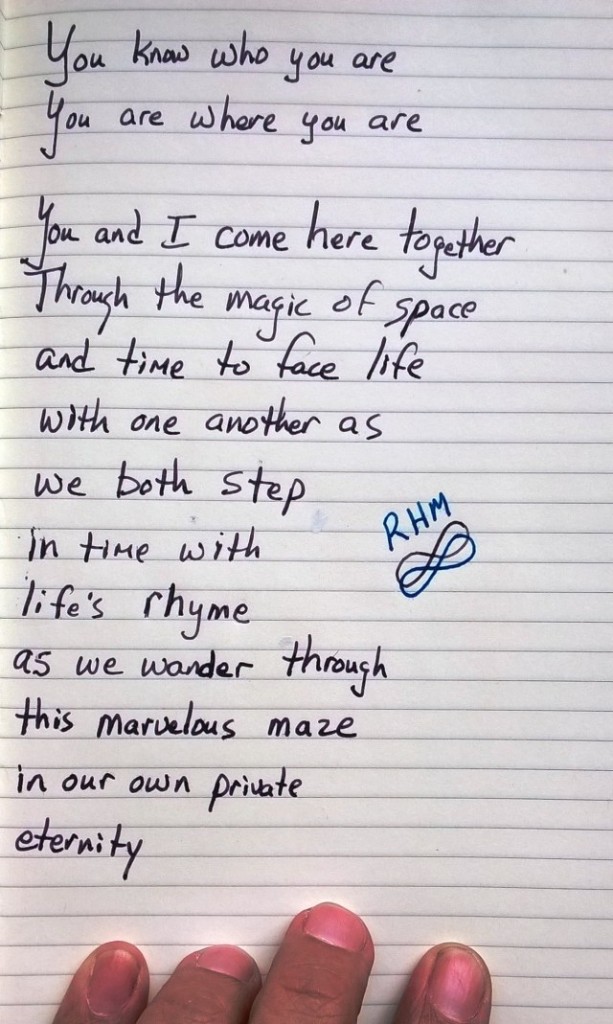 You know who you are
You are where you are
You and I come here together
Through the magic of space
and time to face life
with one another as
we both step
in time with
RHM
life's rhyme
as we wander through
this marvelous maze
in our own private
eternity